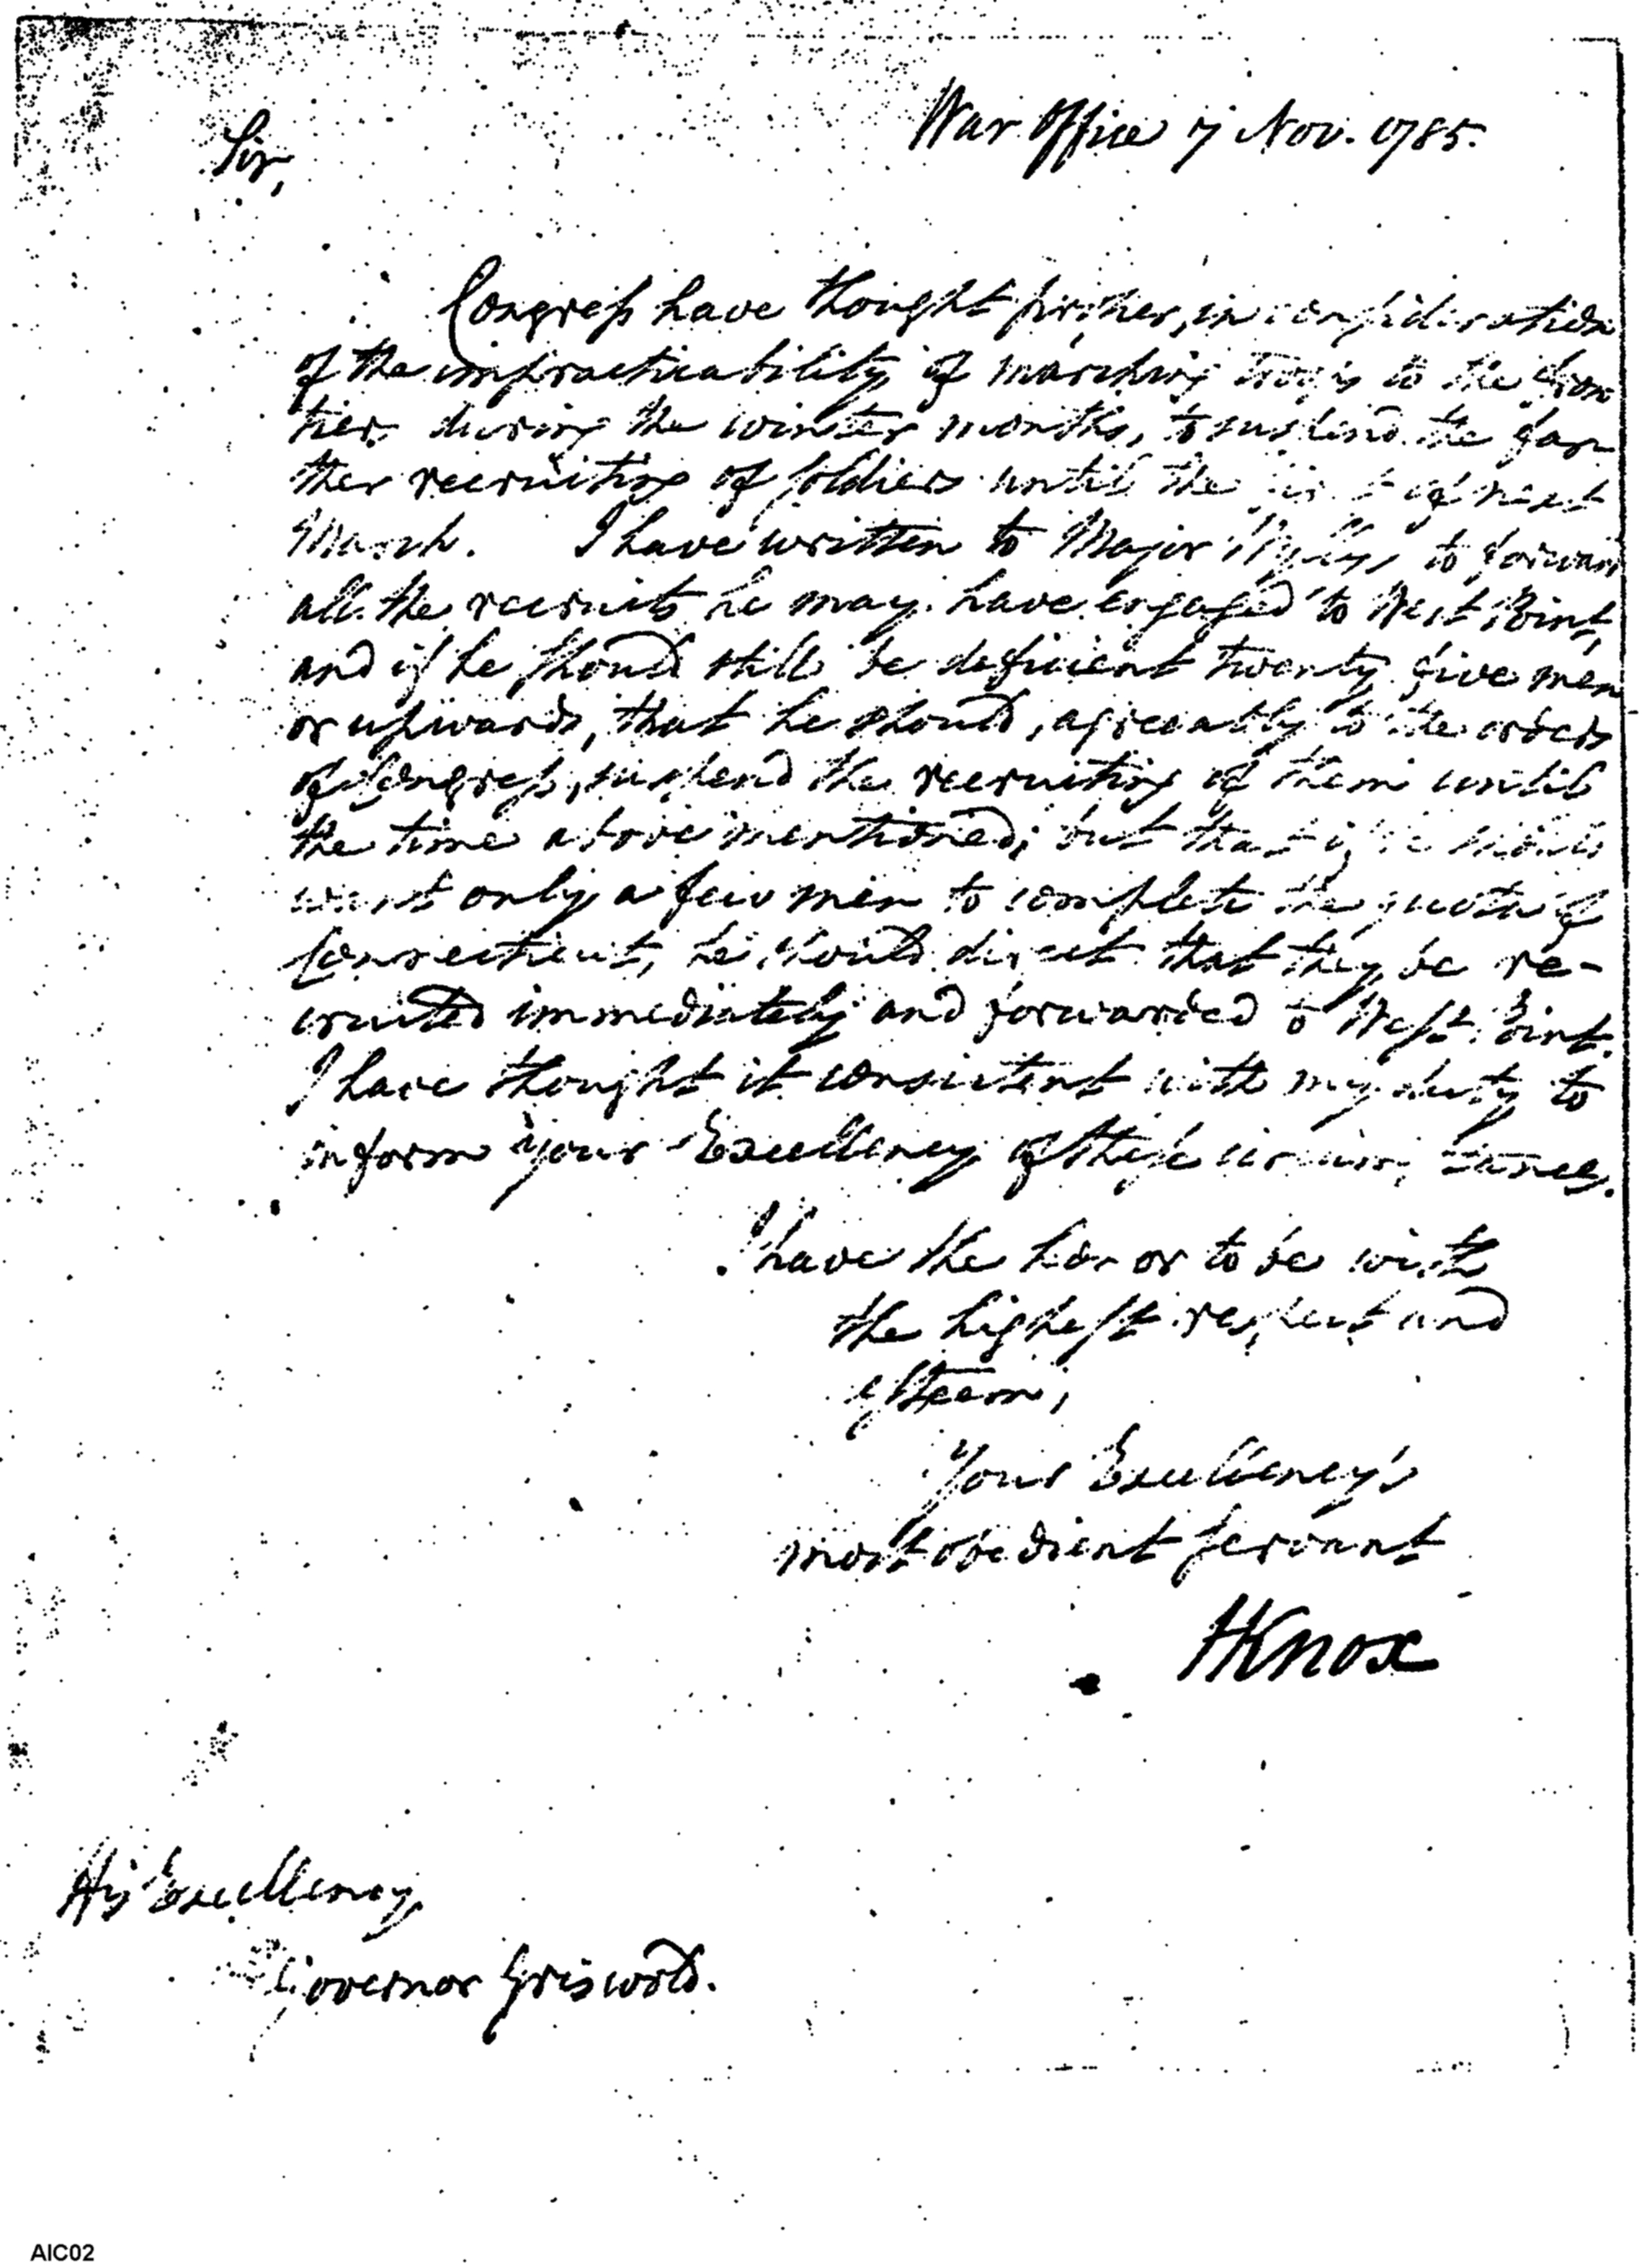 War Office 7 Nov. 1785.
Sir,
Congress have thought proper, in consideration
of the impracticability of marching troops to the fron
tier, during the winter months, to suspend the far
ther recruiting of soldiers until the first of next
March. I have written to Major Wyllys to forward
all the recruits he may have engaged to West Point,
and if he should still be deficient twenty five men
or upwards, that he should, agreeably to the orders
of Congress, suspend the recruiting of them until
the time above mentioned; but that if he should
want only a few men to complete the quota of
Connecticut, he should direct that they be re-
cruited immediately and forwarded to West Point.
I have thought it consistent with my duty to
inform your Excellency of these circumstances.
I have the honor to be with
the highest respect and
esteem,
Your Excellency's
most obedient servant
HKnox
His Excellency
Governor Griswold.
AIC02